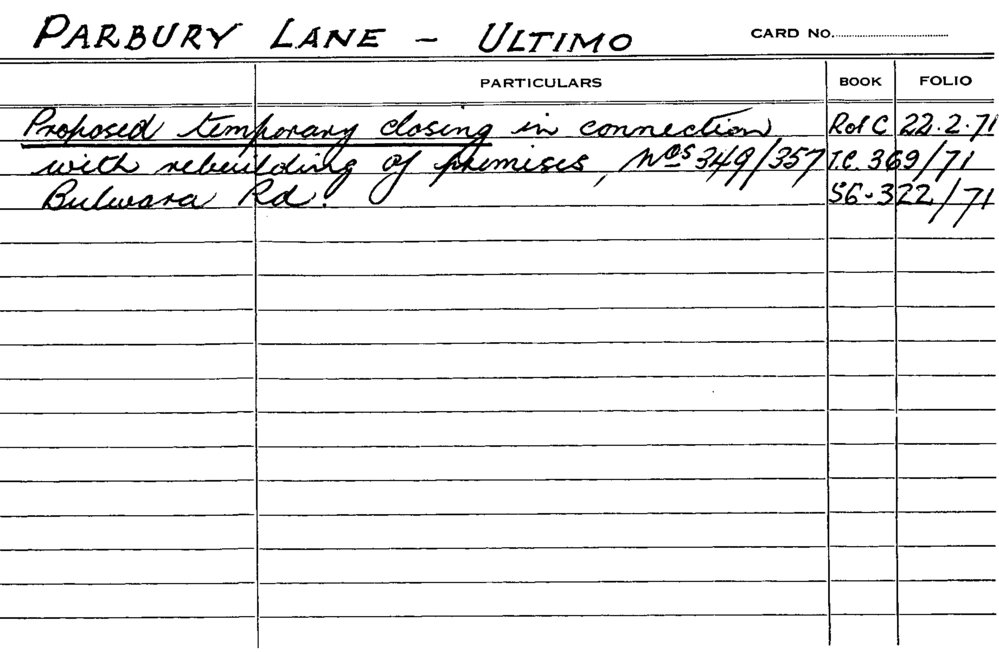 PARBURY LANE - ULTIMO CARD NO.
PARTICULARS BOOK FOLIO
Proposed temporary closing in connection R of C 22.2.71
with rebuilding of premises, Nos 349/357 T.C. 369/71
Bulwara Rd. S6-322/71